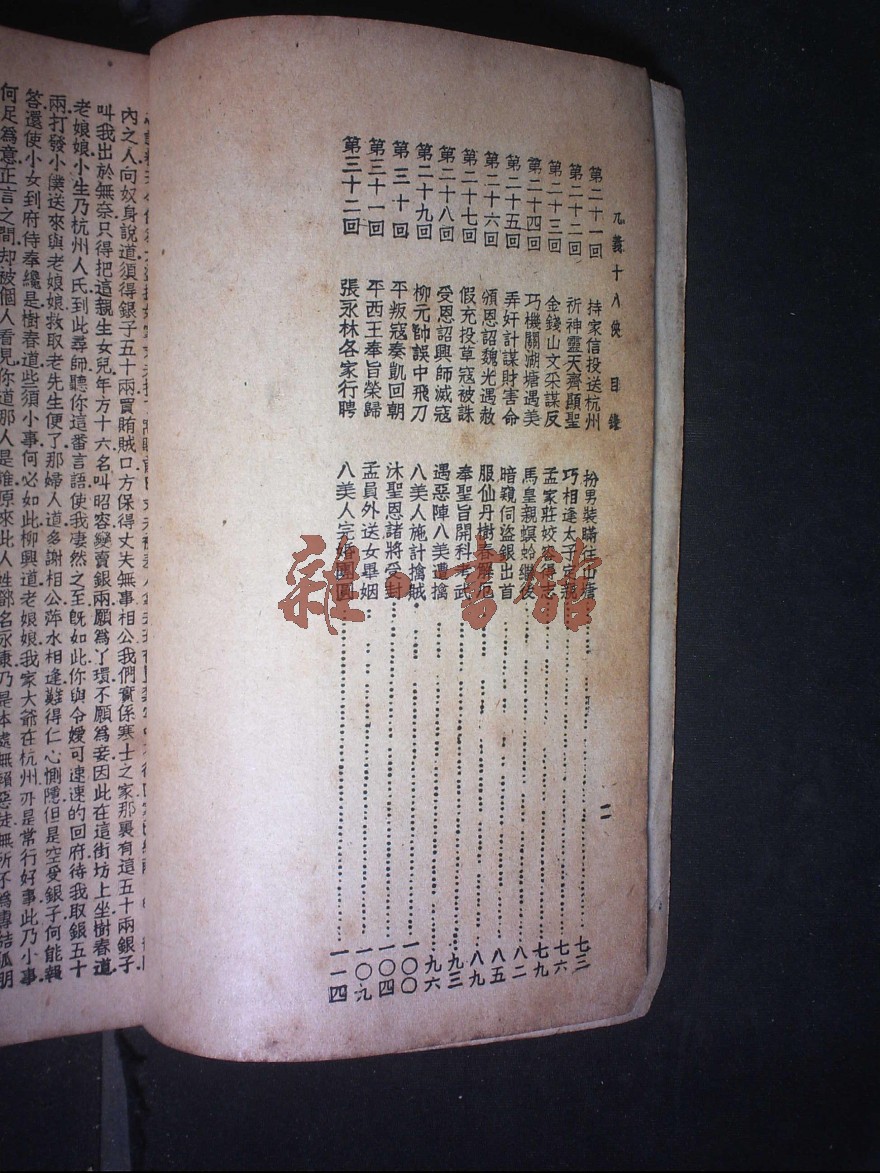 九義十八俠 目錄
第二十一回 持家信投送杭州 扮男裝瞞住山塘 七三
第二十二回 祈神靈天齊顯聖 巧相逢太子定親 七六
第二十三回 金錢山文采謀反 孟家莊姣容得志 七九
第二十四回 巧機關湖塘遇美 馬皇親螟蛉繼後 八二
第二十五回 弄奸計謀財害命 暗窺伺盜銀出首 八五
第二十六回 頒恩詔魏光遇赦 服仙丹樹春解厄 八九
第二十七回 假充投草寇被誅 奉聖旨開科考武 九三
第二十八回 受恩詔興師滅寇 遇惡陣八美遭擒 九六
第二十九回 柳元帥誤中飛刀 八美人施計擒賊 一〇〇
第三十回 平叛寇奏凱回朝 沐聖恩諸將受封 一〇四
第三十一回 平西王奉旨榮歸 孟員外送女畢姻 一〇九
第三十二回 張永林各家行聘 八美人完婚團圓 一一四
二
雜·書館
內之人向奴身說道須得銀子五十兩賣賄賊口方保得丈夫無事相公我們實係寒士之家那裏有這五十兩銀子
叫我出於無奈只得把這親生女兒年方十六名叫昭容變賣銀兩願爲丫環不願爲妾因此在這街坊上坐樹春道
老娘娘小生乃杭州人氏到此尋師聽你這番言語使我凄然之至旣如此你與令嬡可速速的回府待我取銀五十
兩打發小僕送來與老娘娘救取老先生便了那婦人道多謝相公萍水相逢難得仁心惻隱但是空受銀子何能報
答還使小女到府侍奉纔是樹春道些須小事何必如此柳興道老娘娘我家大爺在杭州亦是常行好事此乃小事
何足爲意正言之間却被個人看見你道那人是誰原來此人姓部名永康乃是本處無賴惡徒無所不爲專結狐朋